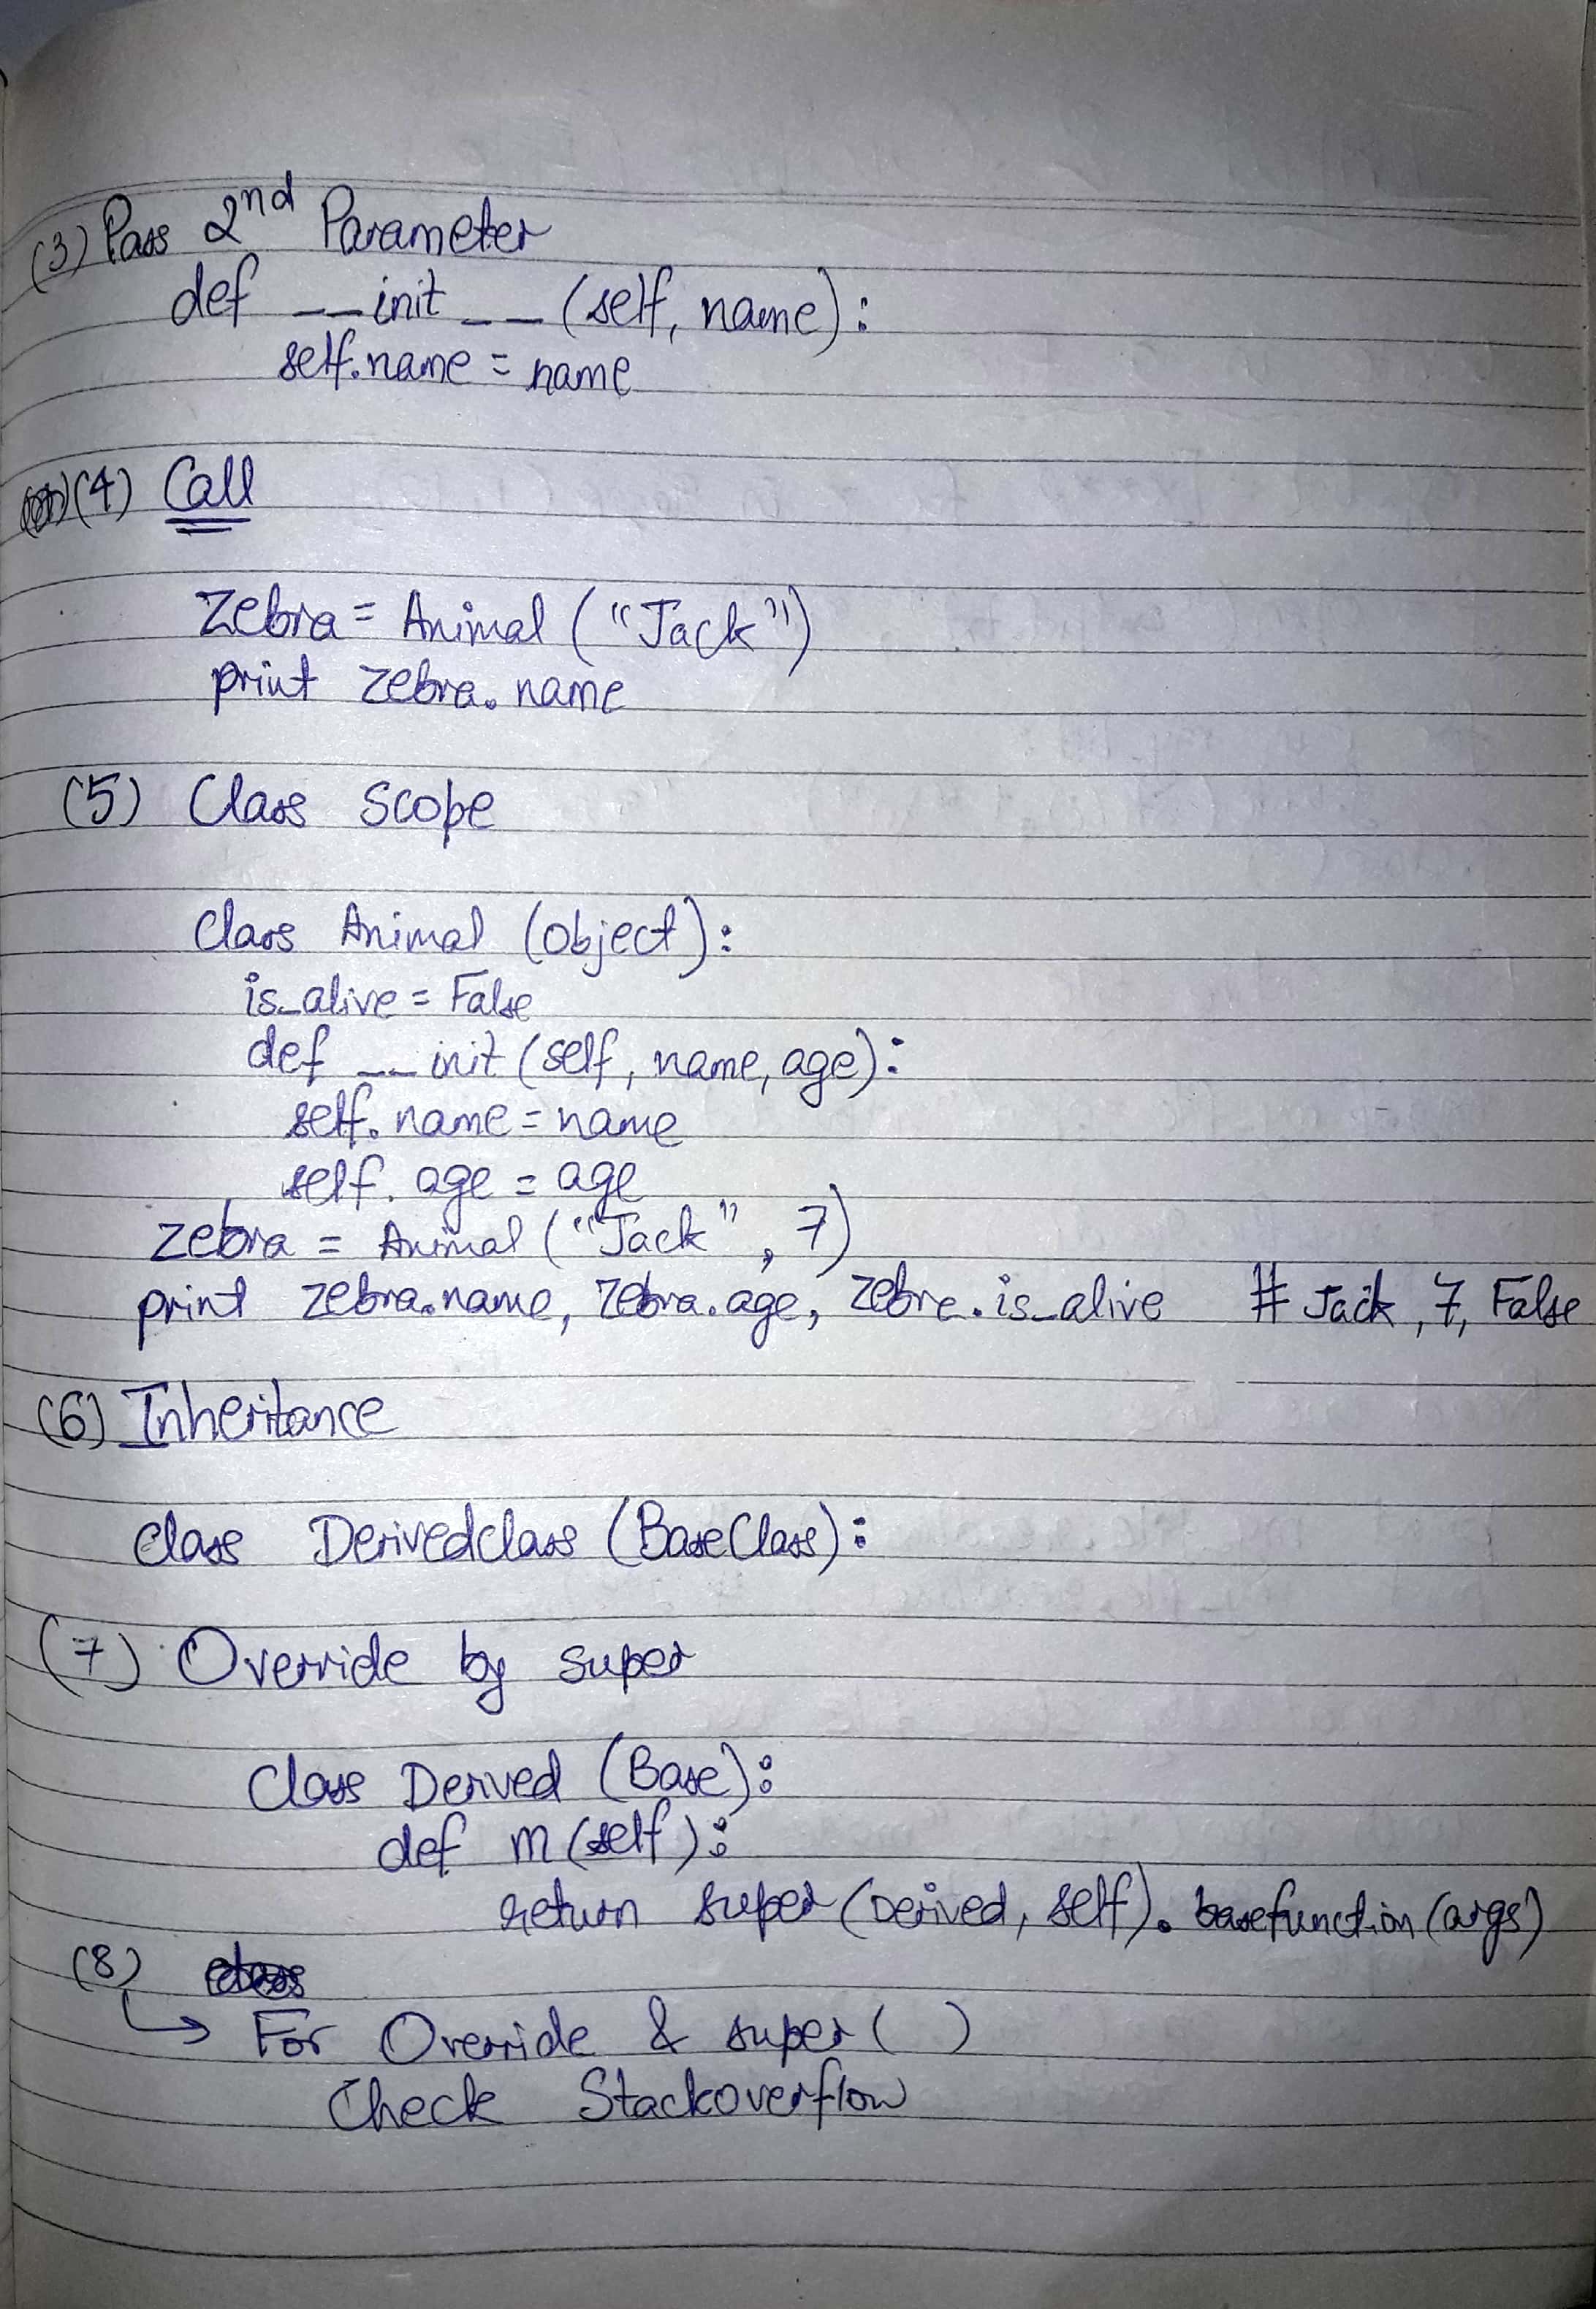 (3) Pass 2nd Parameter
def __init__ (self, name):
self.name = name
(4) Call
Zebra = Animal ("Jack")
print zebra.name
(5) Class Scope
Class Animal (object):
is_alive = False
def __init (self, name, age):
self.name = name
self.age = age
zebra = Animal ("Jack", 7)
print zebra.name, zebra.age, zebra.is_alive # Jack, 7, False
(6) Inheritance
class Derivedclass (BaseClass):
(7) Override by super
Class Derived (Base):
def m(self):
return super(Derived, self).basefunction(args)
(8)
↳ For Override & super( )
Check Stackoverflow